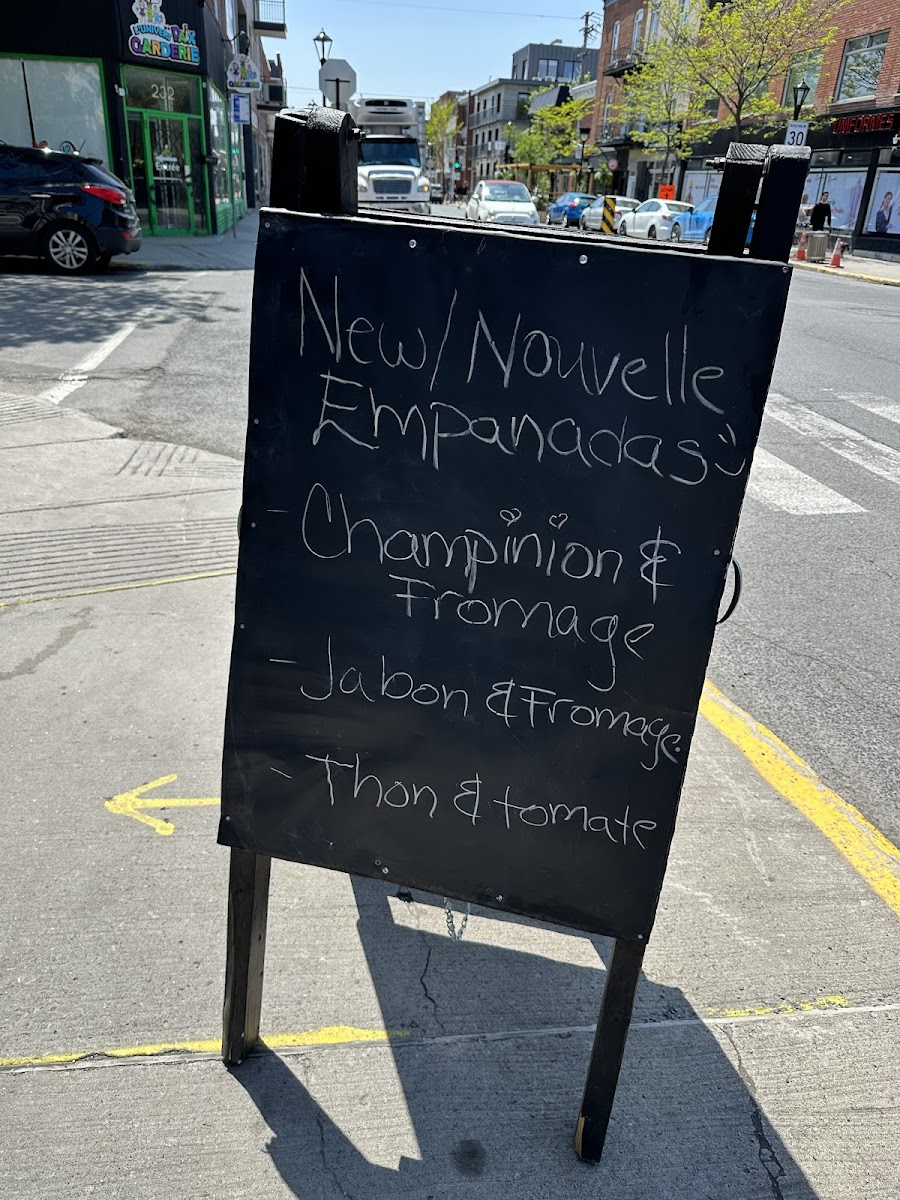 L'UNIVERS DUX
GARDERIE
232
30
UNIFORMES
New/Nouvelle
Empanadas
- Champinion &
Fromage
- Jabon & Fromage.
- Thon & tomate